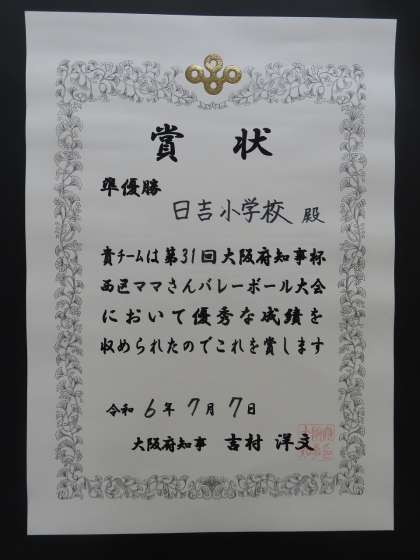 賞状
準優勝
日吉小学校 殿
貴チームは第31回大阪府知事杯
西区ママさんバレーボール大会
において優秀な成績を
収められたのでこれを賞します
令和 6年 7月 7日
大阪府知事 吉村 洋文